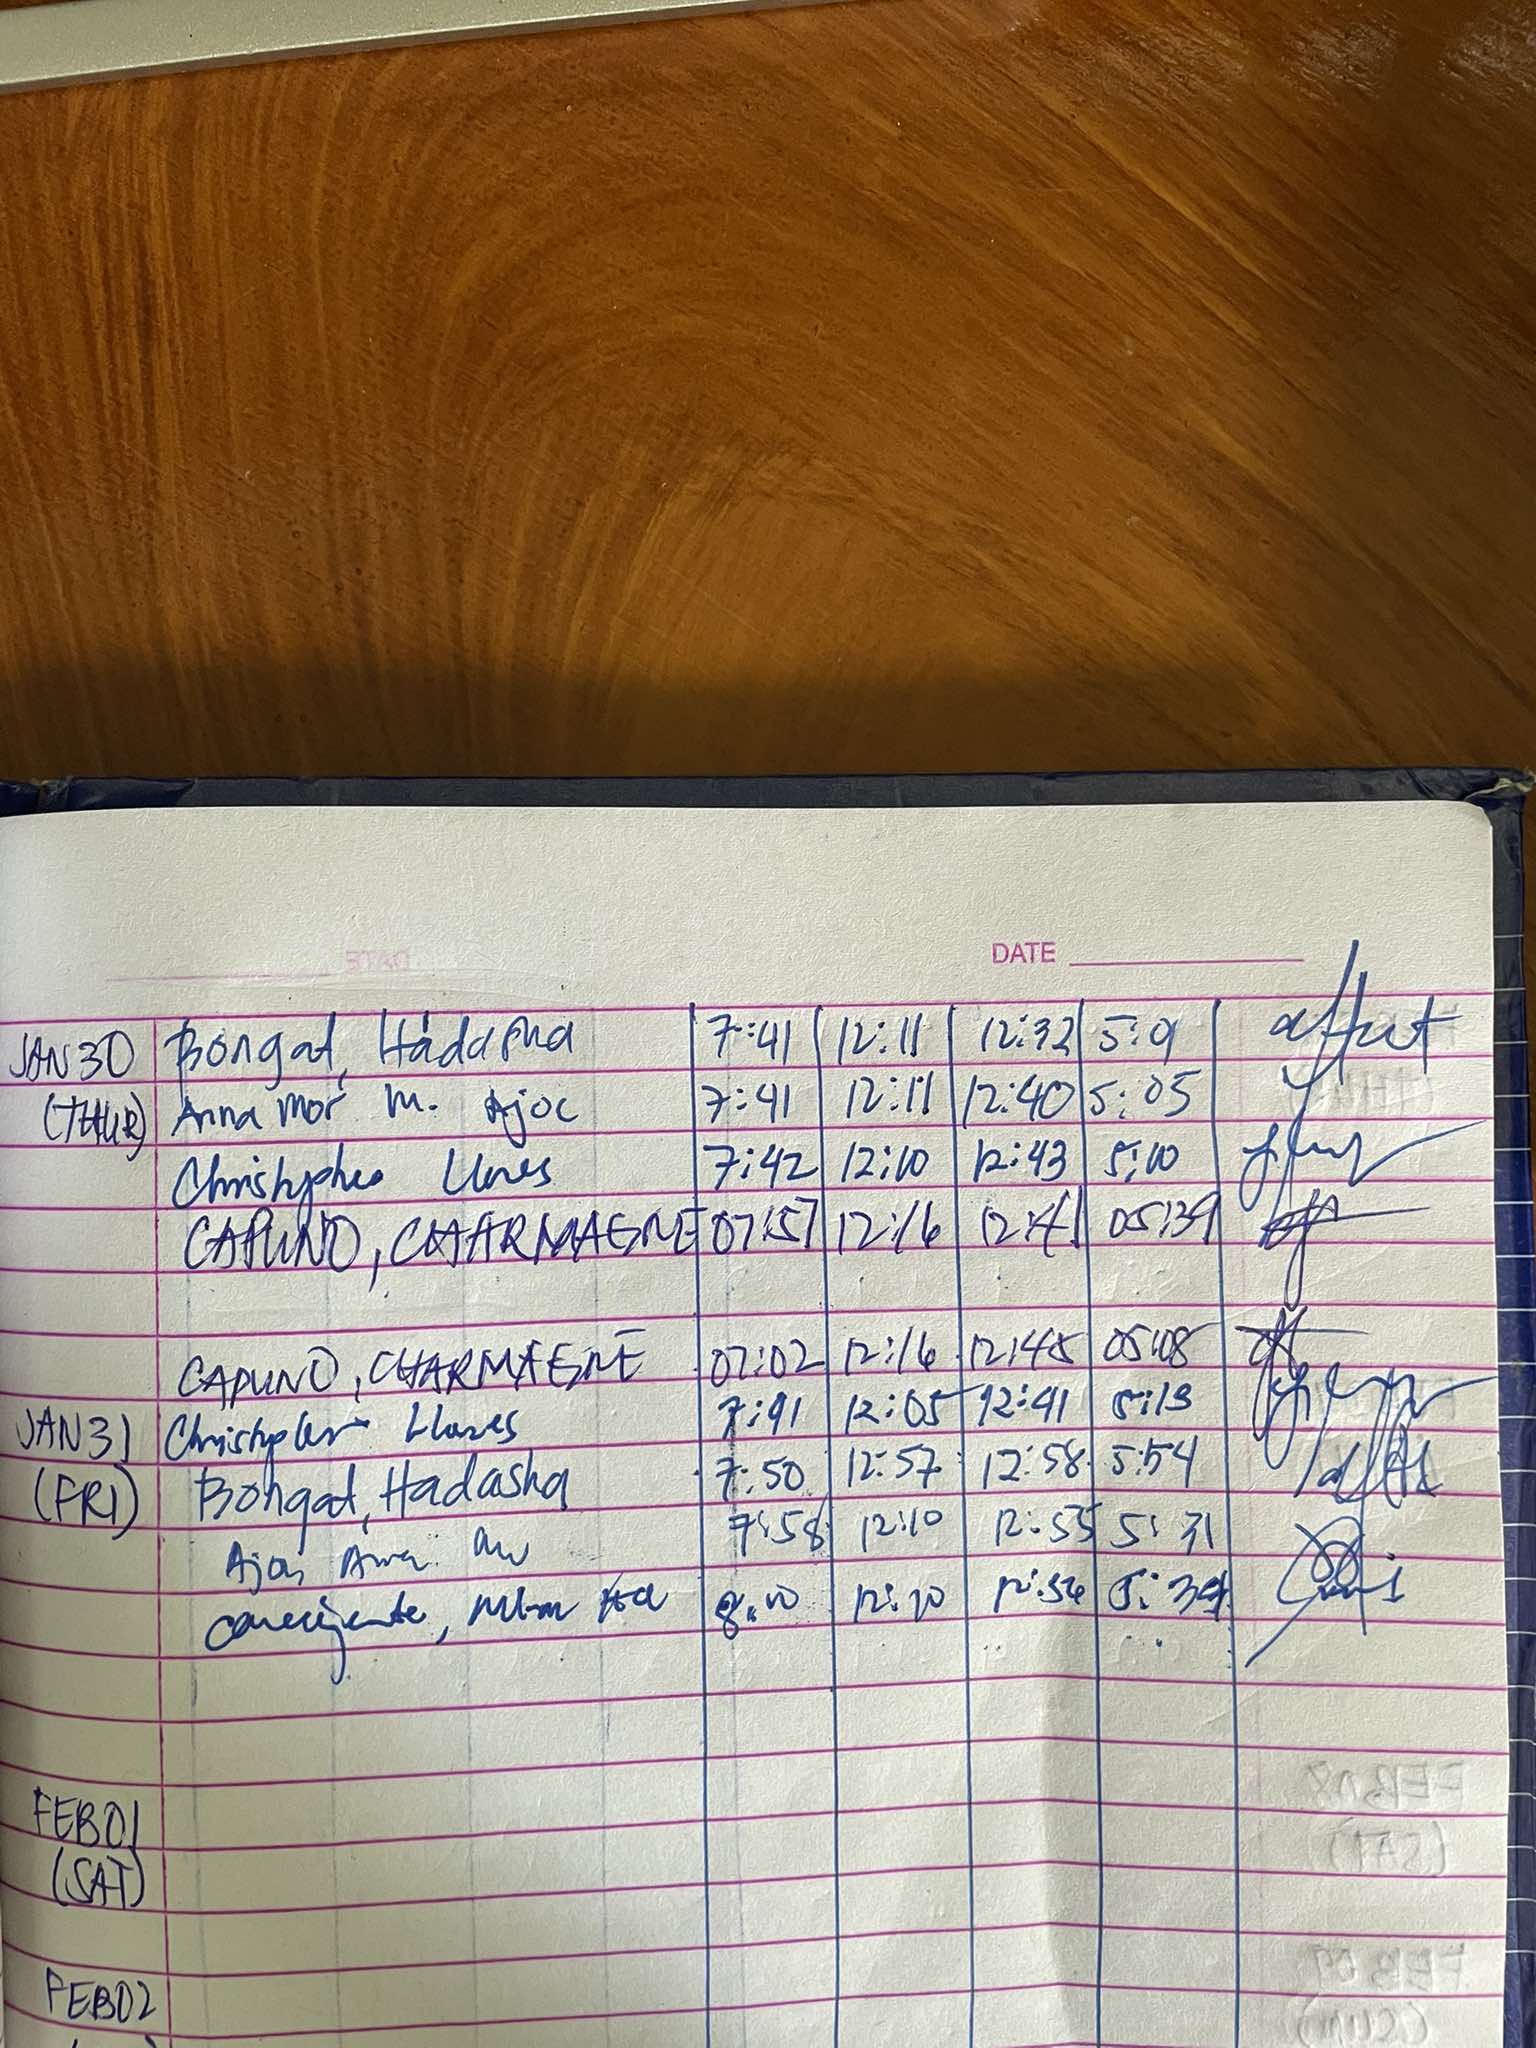 DATE
JAN 30 Bongat, Hadasha 7:41 12:11 12:32 5:9
(THUR) Anna Mor M. Ajoc 7:41 12:11 12:40 5:05
Christypher Llanes 7:42 12:10 12:43 5:10
CAPUNO, CHARMAGNE 07:57 12:16 12:41 05:39
CAPUNO, CHARMAGNE 07:02 12:16 12:45 05:08
JAN 31 Christypher Llanes 7:41 12:05 12:41 5:13
(FRI) Bongat, Hadasha 7:50 12:57 12:58 5:54
Ajoc, Anna 7:58 12:10 12:55 5:31
8:10 12:10 12:56 5:34
FEB 01
(SAT)
FEB 02